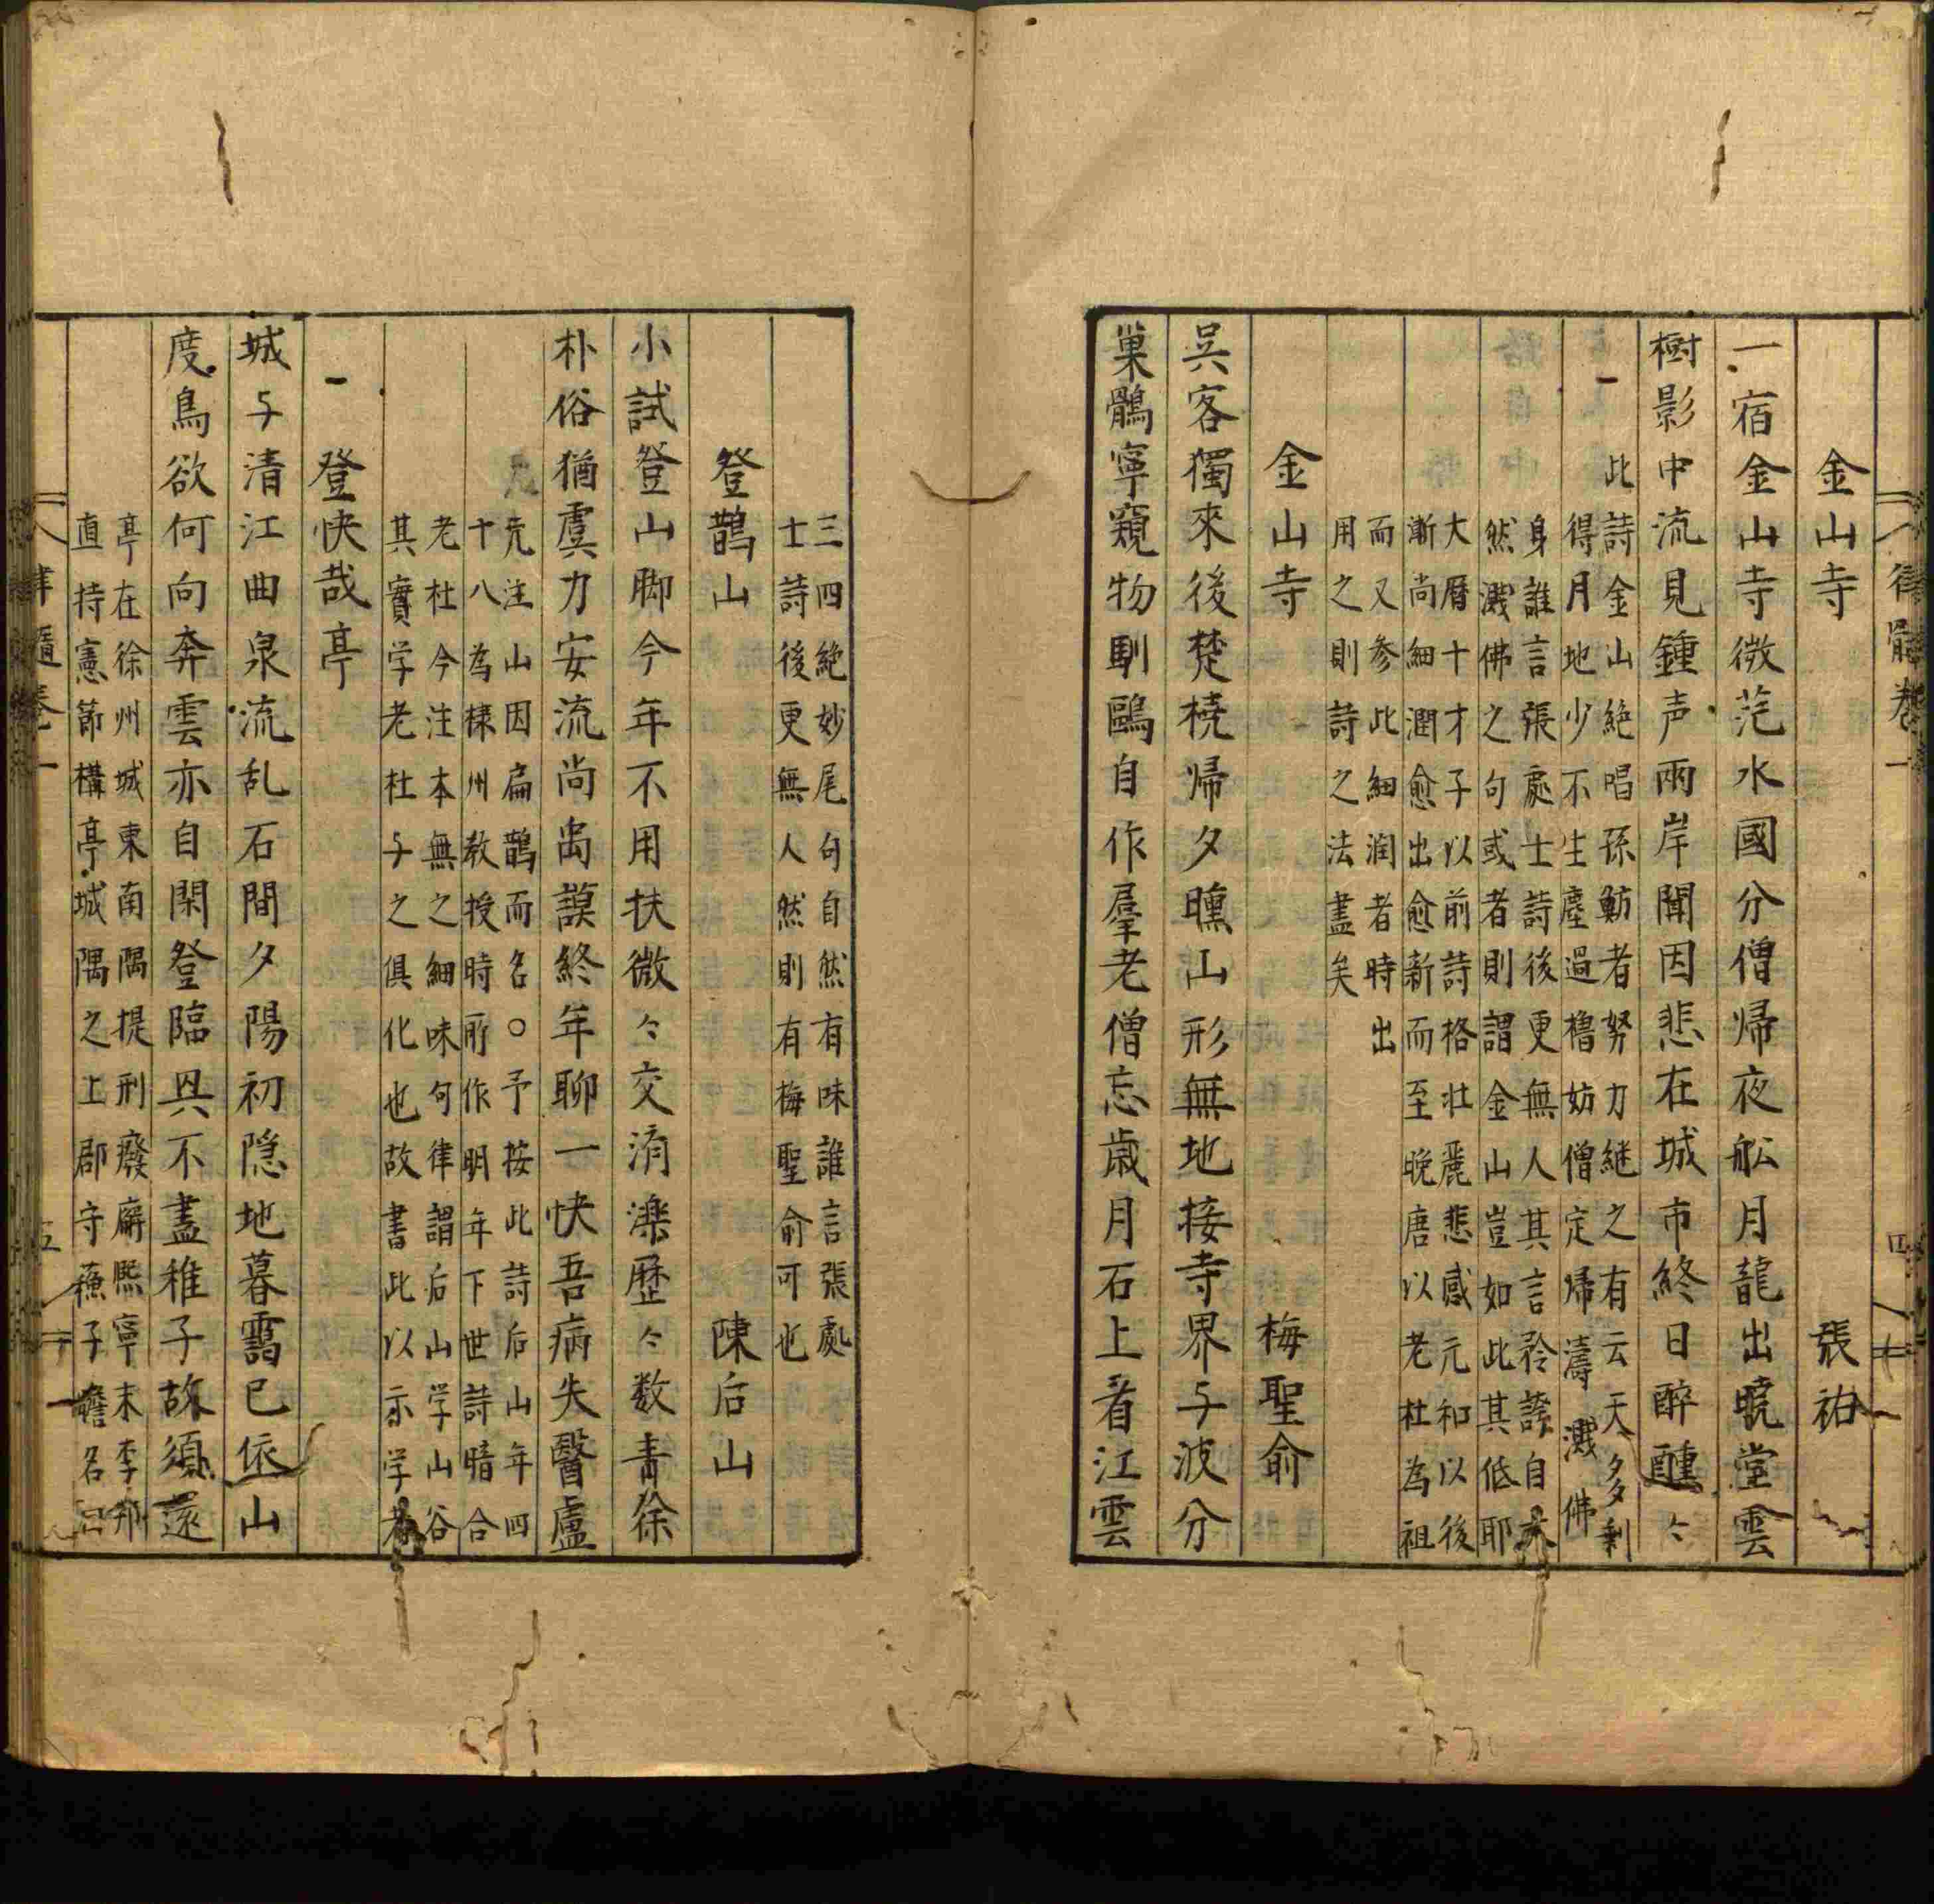 律髓卷一
四
金山寺 張祐
一宿金山寺微茫水國分僧帰夜舩月龍出曉堂雲
樹影中流見鍾声兩岸聞因悲在城市終日醉醺〻
此詩金山絶唱孫魴者努力継之有云天多剰
得月地少不生塵過櫓妨僧定帰濤濺佛
身誰言張處士詩後更無人其言矜誇自大
然濺佛之句或者則謂金山豈如此其低耶
大曆十才子以前詩格壮麗悲感元和以後
漸尚細潤愈出愈新而至晚唐以老杜為祖
而又参此細润者時出
用之則詩之法盡矣
金山寺 梅聖俞
吳客獨來後楚橈帰夕曛山形無地接寺界与波分
巢鶻寧窺物馴鷗自作羣老僧忘歳月石上看江雲
三四絶妙尾句自然有味誰言張處
士詩後更無人然則有梅聖俞可也
登鵲山 陳后山
小試登山脚今年不用扶微〻交濟濼歷〻数青徐
朴俗猶虞力安流尚禹謨終年聊一快吾病失醫盧
元注山因扁鵲而名○予按此詩后山年四
十八為棣州教授時所作明年下世詩暗合
老杜今注本無之細味句律謂后山学山谷
其實学老杜与之俱化也故書此以示学者
登快哉亭
城与清江曲泉流乱石間夕陽初隐地暮靄已依山
度鳥欲何向奔雲亦自閑登臨具不盡稚子故須還
亭在徐州城東南隅提刑廢廨熙寧末李邦
直持憲節構亭城隅之上郡守蘓子瞻名曰
律髓卷一
五